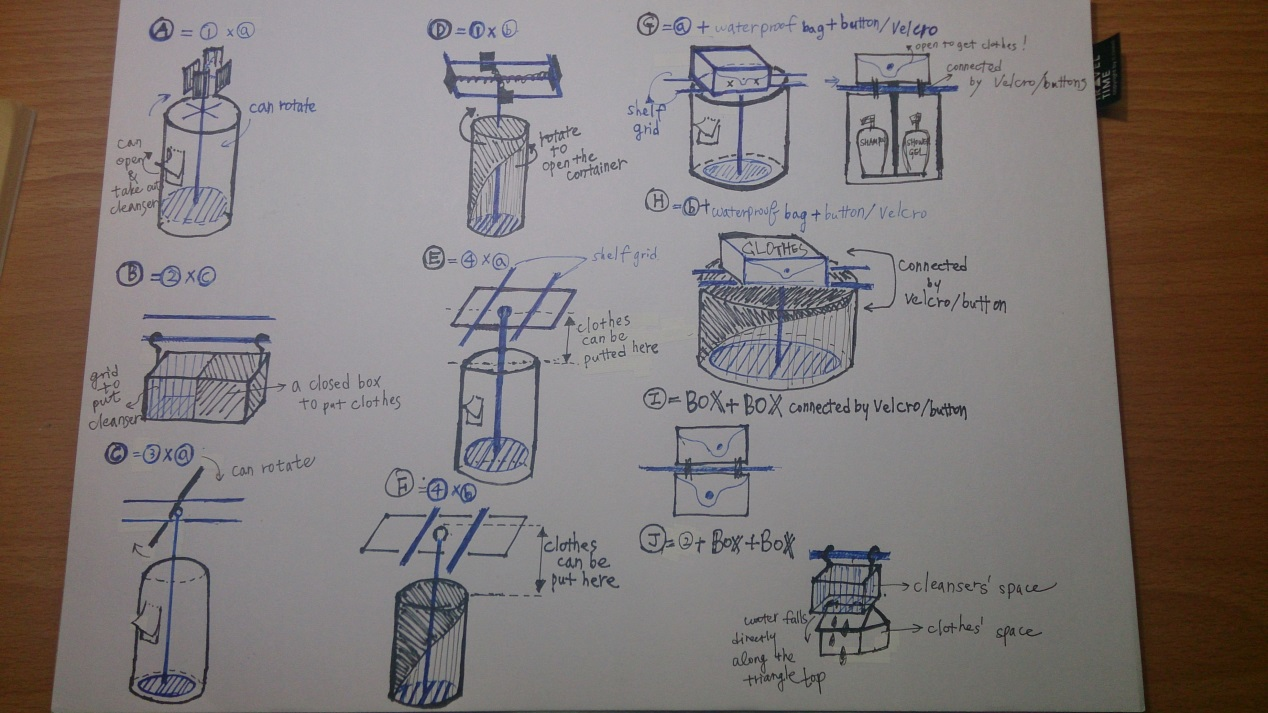 A = ① × ⓐ
can rotate
can
open
&
take out
cleanser
B = ② × ⓒ
grid
to
put
cleanser
a closed box
to put clothes
C = ③ × ⓐ
can rotate
D = ① × ⓑ
rotate
to
open the
container
E = ④ × ⓐ
shelf grid
clothes
can be
putted here
F = ④ × ⓑ
clothes
can be
put here
G = ⓐ + waterproof bag + button/Velcro
open to get clothes!
connected
by Velcro/buttons
shelf
grid
SHAMPOO
SHOWER
GEL
H = ⓑ + waterproof bag + button/Velcro
CLOTHES
Connected
by
Velcro/button
I = BOX + BOX connected by Velcro/button
J = ② + BOX + BOX
cleansers' space
clothes' space
water falls
directly
along the
triangle top
TIME